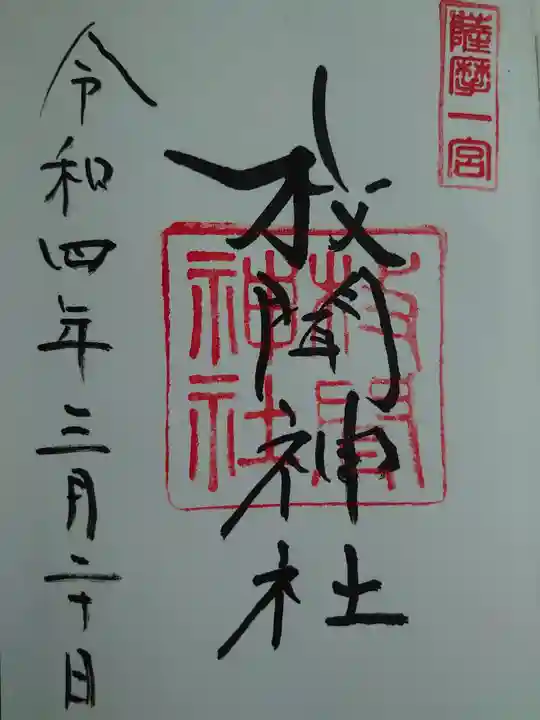 薩摩一宮
枚聞神社
枚聞
神社
令和四年三月二十日